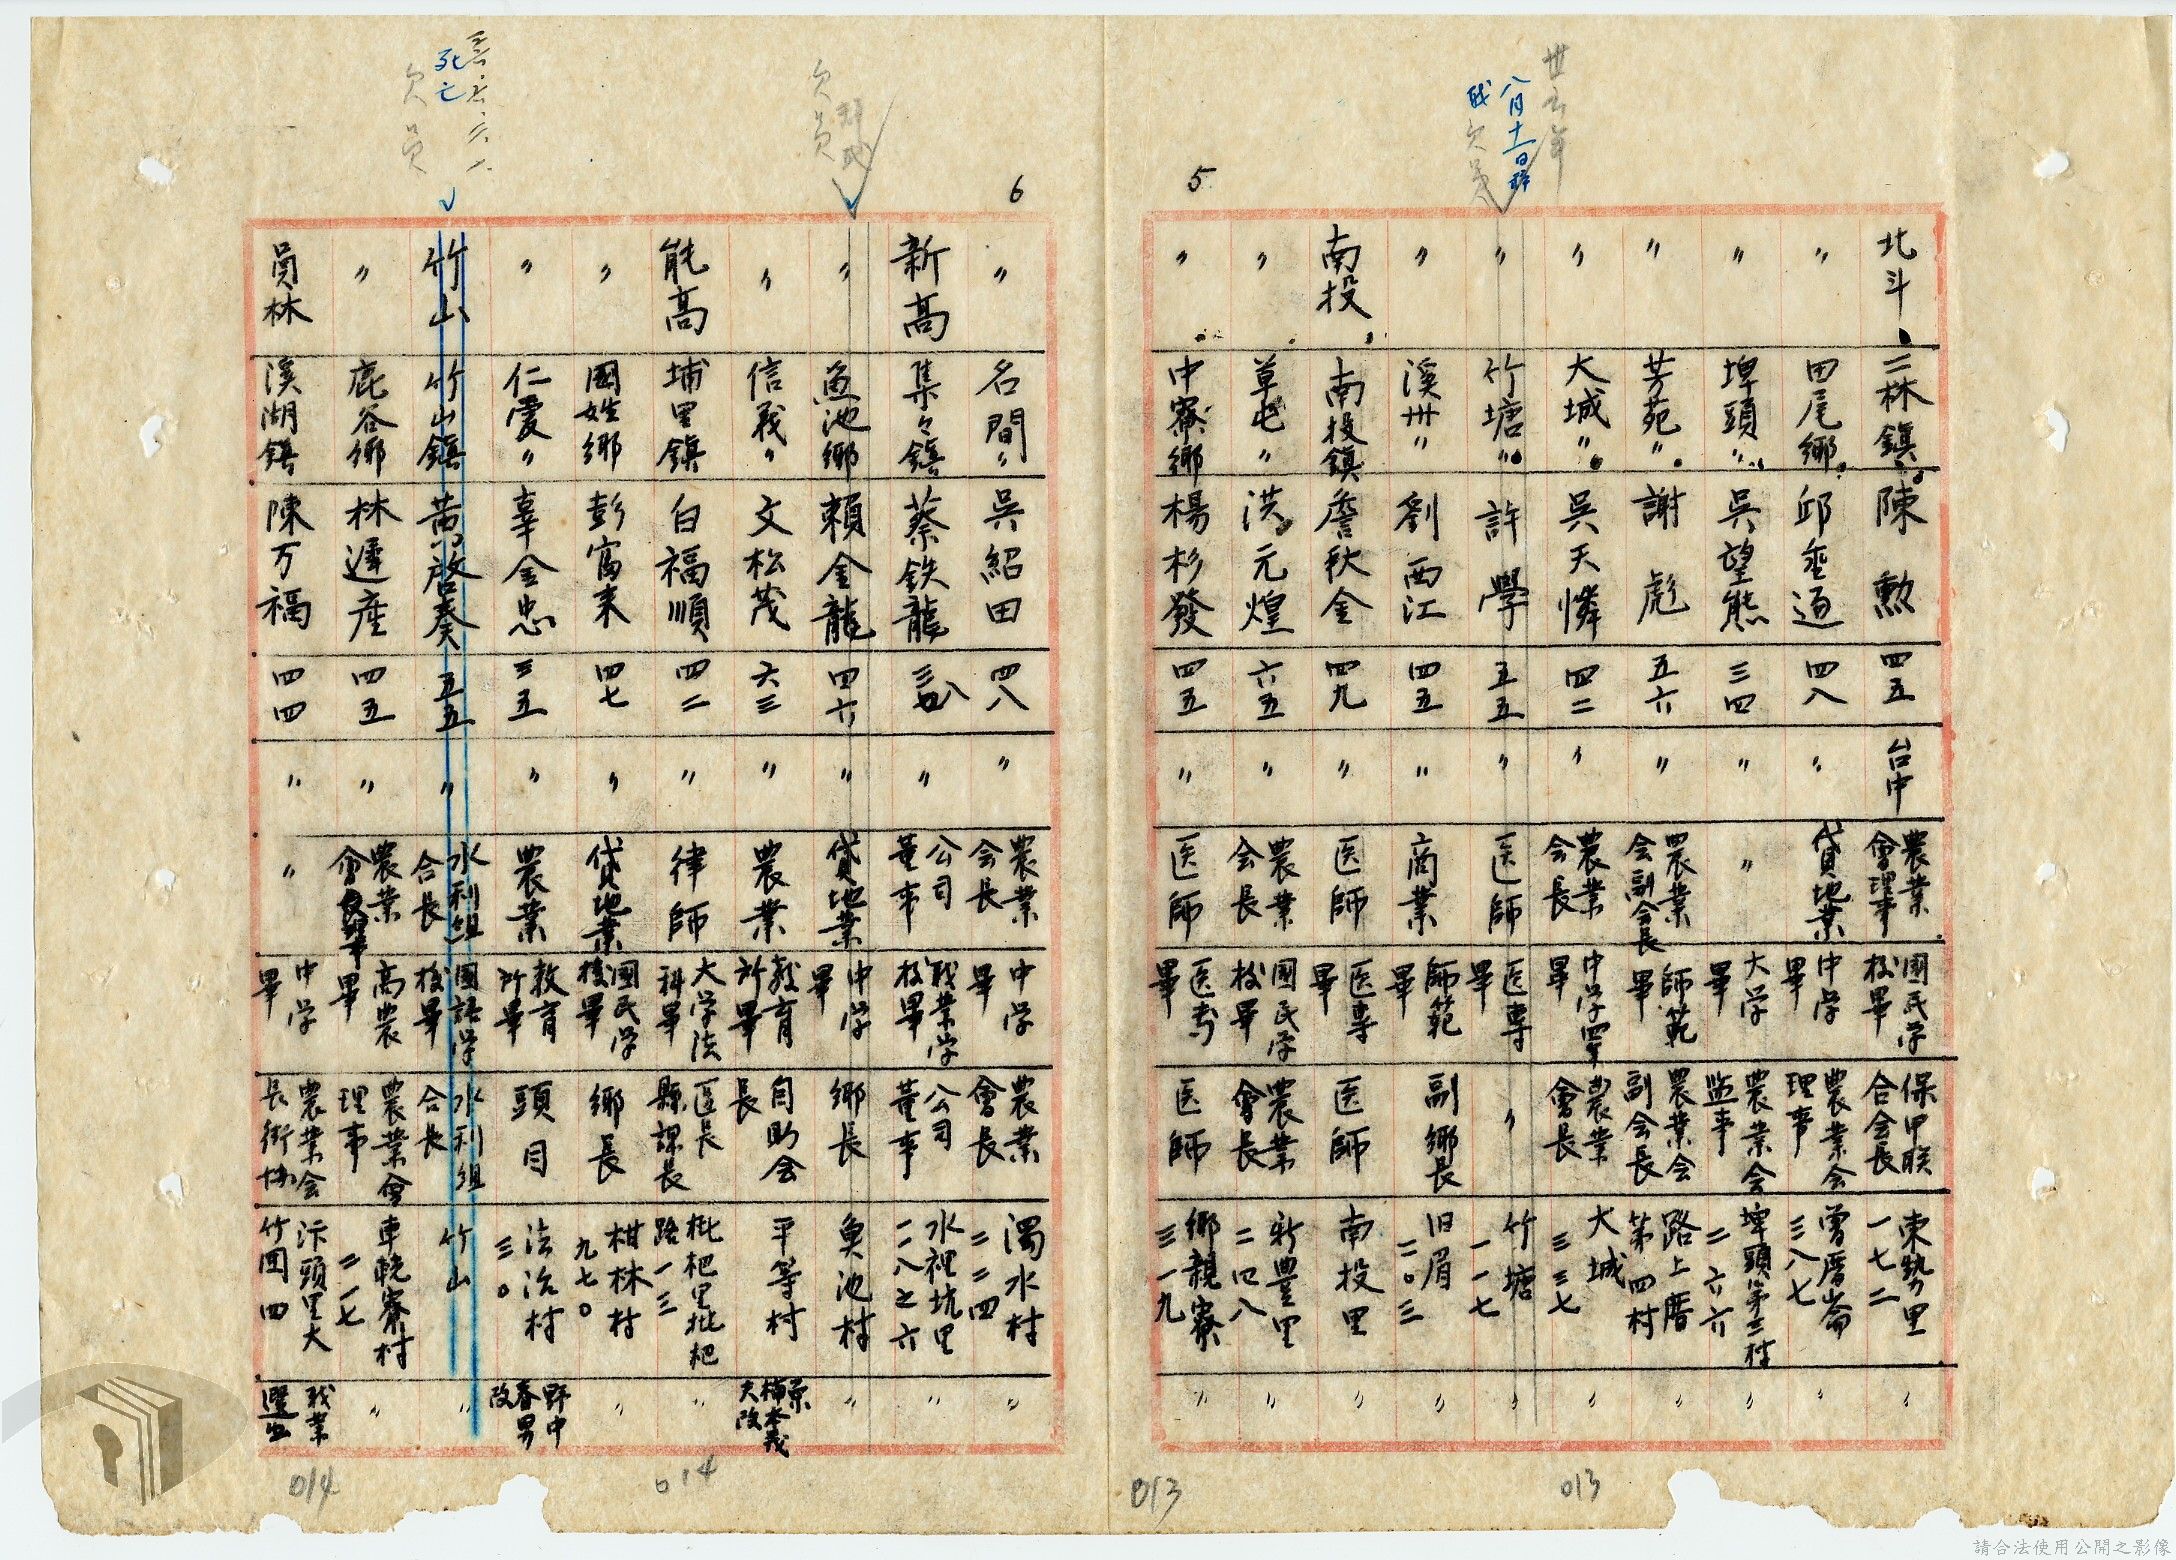 5
八月十一日辭
欠員
北斗 二林鎮 陳勲 四五 台中 農業會理事 國民学校畢 保甲联合会長 東勢里一七二 〃
〃 田尾鄉 邱垂逎 四八 〃 貸地業 中学畢 農業会理事 曾厝崙三八七 〃
〃 埤頭〃 吳望熊 三四 〃 〃 大学畢 農業会监事 埤頭第三村二六六 〃
〃 芳苑〃 謝彪 五六 〃 農業会副会長 師範畢 農業会副会長 路上厝第四村 〃
〃 大城〃 吳天憐 四二 〃 農業会長 中学畢 農業會長 大城三三七 〃
〃 竹塘〃 許學 五五 〃 医師 医専畢 〃 竹塘一一七 〃
〃 溪州〃 劉西江 四五 〃 商業 師範畢 副鄉長 旧眉二〇三 〃
南投 南投鎮 詹秋金 四九 〃 医師 医專畢 医師 南投里 〃
〃 草屯〃 洪元煌 六五 〃 農業会長 國民学校畢 農業會長 新豊里二四八 〃
〃 中寮鄉 楊杉發 四五 〃 医師 医専畢 医師 鄉親寮三一九 〃
013
013
6
欠員
死亡
欠員
〃 名間〃 吳紹田 四八 〃 農業会長 中学畢 農業會長 濁水村二二四 〃
新高 集々鎮 蔡鉄龍 三八 〃 公司董事 戝業学校畢 公司董事 水裡坑里一八之六 〃
〃 魚池鄉 賴金龍 四六 〃 貸地業 中学畢 鄉長 魚池村 〃
〃 信義〃 文松茂 六三 〃 農業 教育所畢 自助会長 平等村
能高 埔里鎮 白福順 四二 〃 律師 大学法科畢 區長縣課長 枇杷里枇杷路一三 〃
〃 國姓鄉 彭富来 四七 〃 貸地業 國民学校畢 鄉長 柑林村九七〇 〃
〃 仁愛〃 辜金忠 三五 〃 農業 教育所畢 頭目 法治村三〇 野中春男改
竹山 竹山鎮 黄啓奏 五五 〃 水利組合長 國語学校畢 水利組合長 竹山 〃
〃 鹿谷鄉 林遲座 四五 〃 農業會理事 高農畢 農業會理事 車輄寮村二一七 〃
員林 溪湖鎮 陳万福 四四 〃 〃 中学畢 農業会長街協 汴頭里大竹囲四
014
014
請合法使用公開之影像